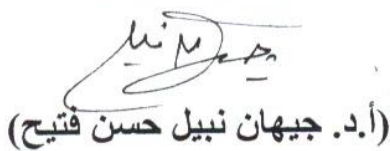 (أ.د. جيهان نبيل حسن فتيح)